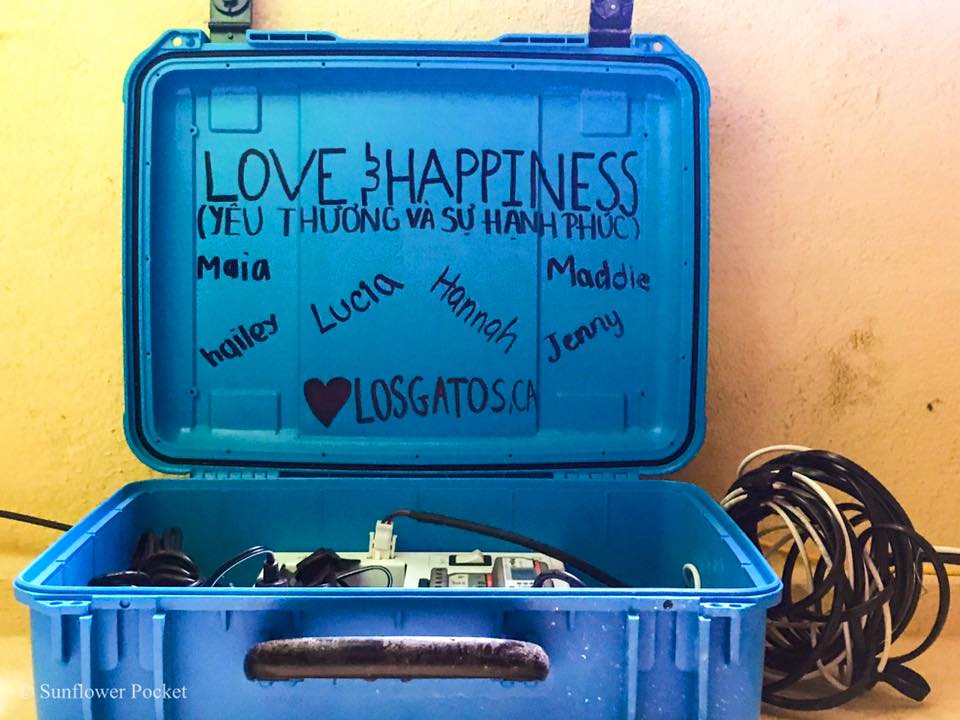 LOVE & HAPPINESS
(YÊU THƯƠNG VÀ SỰ HẠNH PHÚC)
Maia
Maddie
Lucia
Hannah
hailey
Jenny
♥LOSGATOS,CA
© Sunflower Pocket